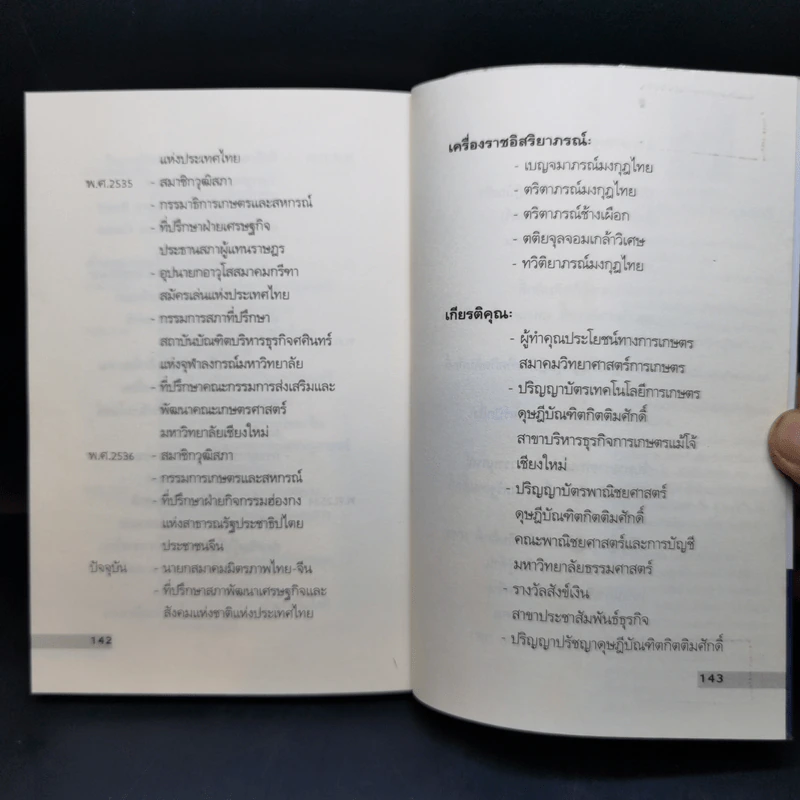 แห่งประเทศไทย
พ.ศ.2535 - สมาชิกวุฒิสภา
- กรรมาธิการเกษตรและสหกรณ์
- ที่ปรึกษาฝ่ายเศรษฐกิจ
ประธานสภาผู้แทนราษฎร
- อุปนายกอาวุโสสมาคมกรีฑา
สมัครเล่นแห่งประเทศไทย
- กรรมการสภาที่ปรึกษา
สถาบันบัณฑิตบริหารธุรกิจศศินทร์
แห่งจุฬาลงกรณ์มหาวิทยาลัย
- ที่ปรึกษาคณะกรรมการส่งเสริมและ
พัฒนาคณะเกษตรศาสตร์
มหาวิทยาลัยเชียงใหม่
พ.ศ.2536 - สมาชิกวุฒิสภา
- กรรมการเกษตรและสหกรณ์
- ที่ปรึกษาฝ่ายกิจกรรมฮ่องกง
แห่งสาธารณรัฐประชาธิปไตย
ประชาชนจีน
ปัจจุบัน - นายกสมาคมมิตรภาพไทย-จีน
- ที่ปรึกษาสภาพัฒนาเศรษฐกิจและ
สังคมแห่งชาติแห่งประเทศไทย
142
เครื่องราชอิสริยาภรณ์:
- เบญจมาภรณ์มงกุฎไทย
- ตริตาภรณ์มงกุฎไทย
- ตริตาภรณ์ช้างเผือก
- ตติยจุลจอมเกล้าวิเศษ
- ทวิติยาภรณ์มงกุฎไทย
เกียรติคุณ:
- ผู้ทำคุณประโยชน์ทางการเกษตร
สมาคมวิทยาศาสตร์การเกษตร
- ปริญญาบัตรเทคโนโลยีการเกษตร
ดุษฎีบัณฑิตกิตติมศักดิ์
สาขาบริหารธุรกิจการเกษตรแม้โจ้
เชียงใหม่
- ปริญญาบัตรพาณิชยศาสตร์
ดุษฎีบัณฑิตกิตติมศักดิ์
คณะพาณิชยศาสตร์และการบัญชี
มหาวิทยาลัยธรรมศาสตร์
- รางวัลสังข์เงิน
สาขาประชาสัมพันธ์ธุรกิจ
- ปริญญาปรัชญาดุษฎีบัณฑิตกิตติมศักดิ์
143